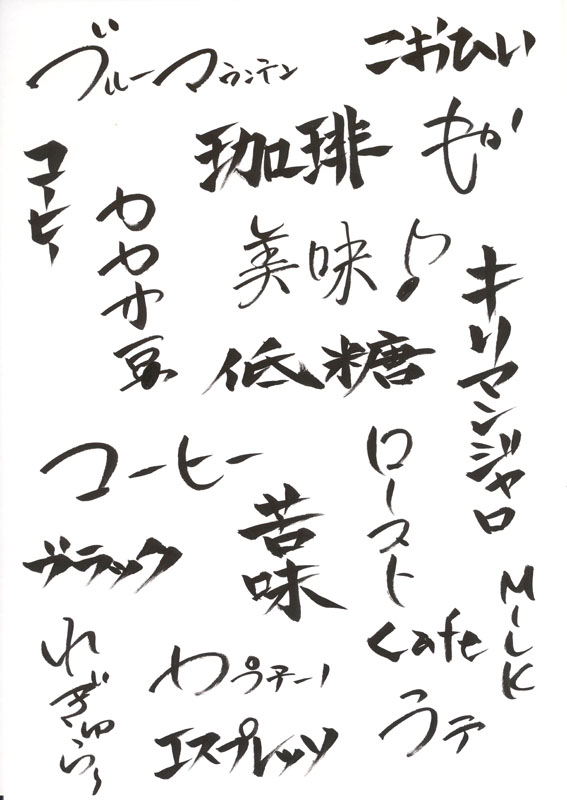 ブルーマウンテン
こおひい
珈琲
もか
コーヒー
カカオ豆
美味
キリマンジャロ
低糖
コーヒー
ロースト
ブラック
苦味
MiLK
cafe
れぎゅらー
カプチーノ
ラテ
エスプレッソ